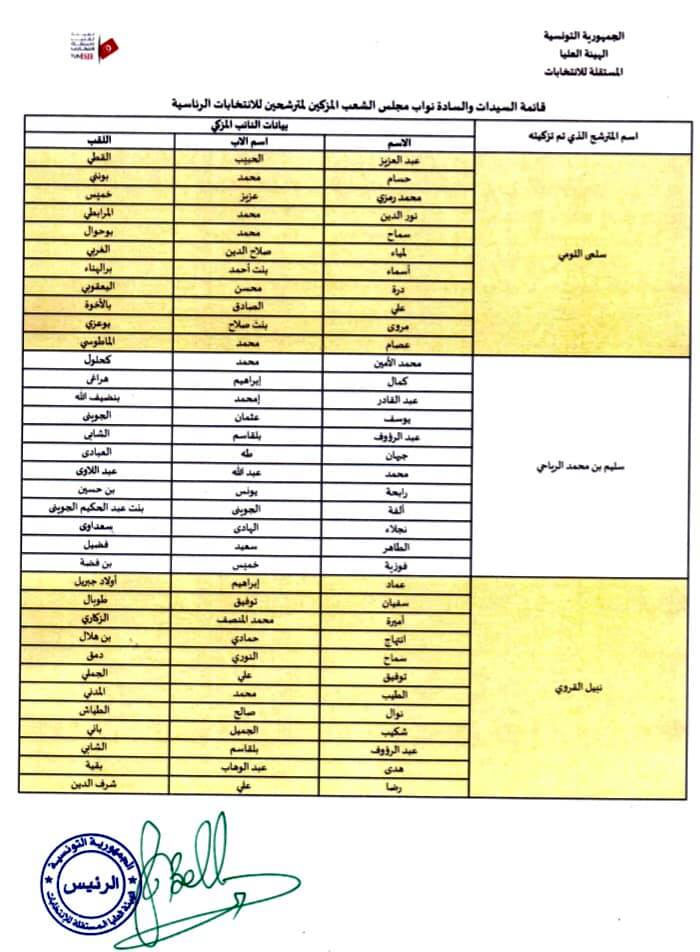 الجمهورية التونسية
الهيئة العليا
المستقلة للانتخابات
قائمة السيدات والسادة نواب مجلس الشعب المزكين لمترشحين للانتخابات الرئاسية
اسم المترشح الذي تم تزكيته
بيانات النائب المزكي
الاسم اسم الاب اللقب
سلمى اللومي
عبد العزيز الحبيب القطي
حسام محمد بونني
محمد رمزي عزيز خميس
نور الدين محمد المرابطي
سماح محمد بوحوال
لمياء صلاح الدين الغربي
أسماء بنت أحمد برالهناء
درة محسن اليعقوبي
علي الصادق بالأخوة
مروى بنت صلاح بوعزي
عصام محمد الماطوسي
سليم بن محمد الرياحي
محمد الأمين محمد كحلول
كمال إبراهيم هراغى
عبد القادر إمحمد بنضيف الله
يوسف عثمان الجوينى
عبد الرؤوف بلقاسم الشابى
جيهان طه العبادى
محمد عبد الله عبد اللاوى
رابحة يونس بن حسين
ألفة الجوينى بنت عبد الحكيم الجوينى
نجلاء الهادى سعداوى
الطاهر سعيد فضيل
فوزية خميس بن فضة
نبيل القروي
عماد إبراهيم أولاد جبريل
سفيان توفيق طوبال
أميرة محمد المنصف الزكاري
انتهاج حمادي بن هلال
سماح النوري دمق
توفيق علي الجملي
الطيب محمد المدني
نوال صالح الطياش
شكيب الجميل باني
عبد الرؤوف بلقاسم الشابي
هدى عبد الوهاب بقية
رضا علي شرف الدين
الجمهورية التونسية
الرئيس
الهيئة العليا المستقلة للانتخابات